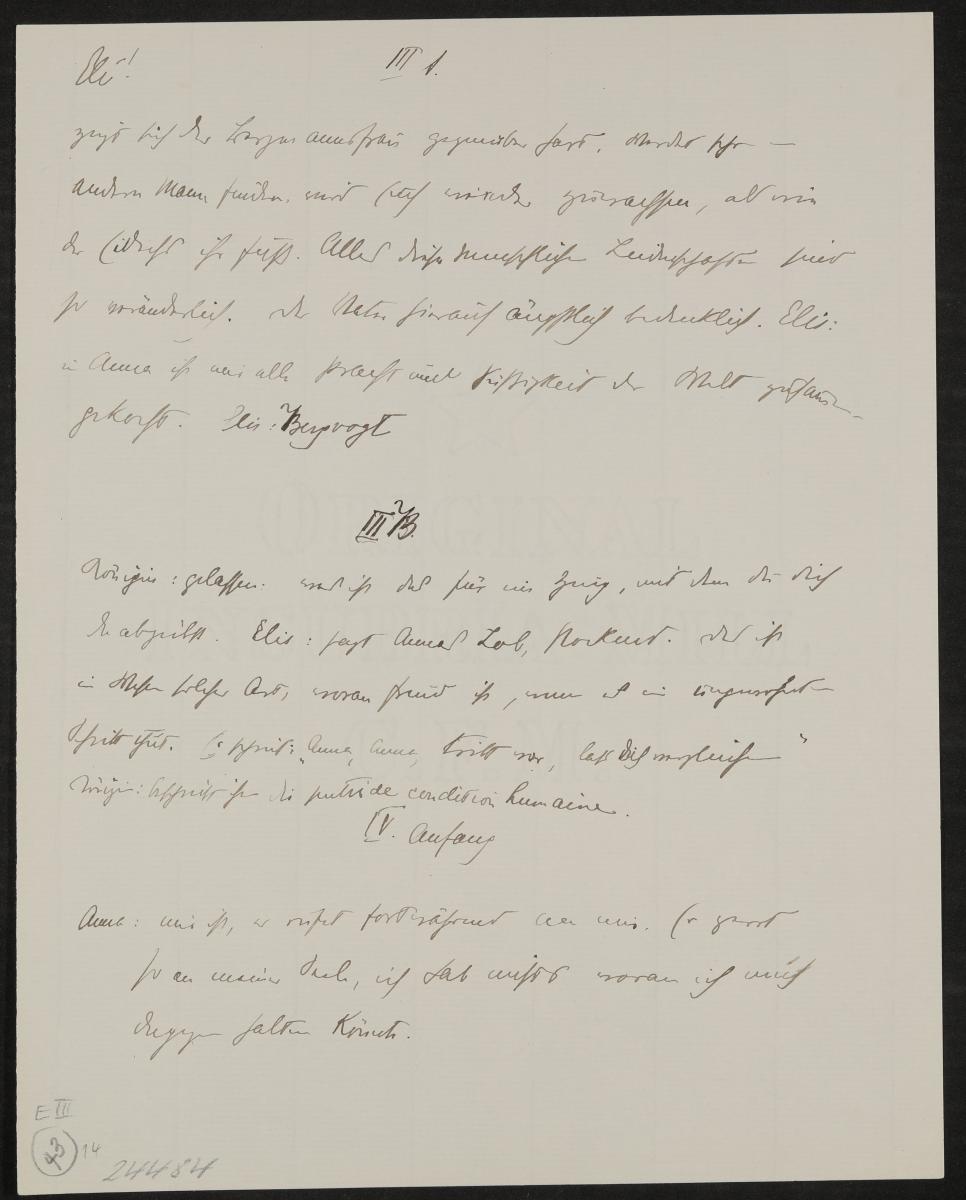 Elis! III A.
zeigt sich der Bergmannsfrau gegenüber hart, werdet schon
andern Mann finden. wird sich wieder zuwachsen, als wie
der ihr . Alles diese menschlichen Leidenschaften sind
so veränderlich. der Vater hierauf ängstlich bedenklich. Elis:
in Anna ist mir alle Pracht und Süssigkeit der Welt zusamm
gekocht. Elis: Bergvogt
III B.
Königin: gelassen: was ist das für ein Zeug, mit dem du dich
da abgibst. Elis: sagt Annas Lob, stockend. Das ist
ein Wesen solcher Art, woran Freud ist, wenn es ein ungewohnten
Schritt thut. Er schreit: „Anna, Anna, tritt vor, lass dich vergleichen"
Königin: beschreibt ihm die putride condition humaine.
IV. Anfang
Anna: mir ist, er rufet fortwährend an mir. Er zerrt
so an meiner Seele, ich hab nichts woran ich mich
dagegen halten könnte.
E III
43 14
24484